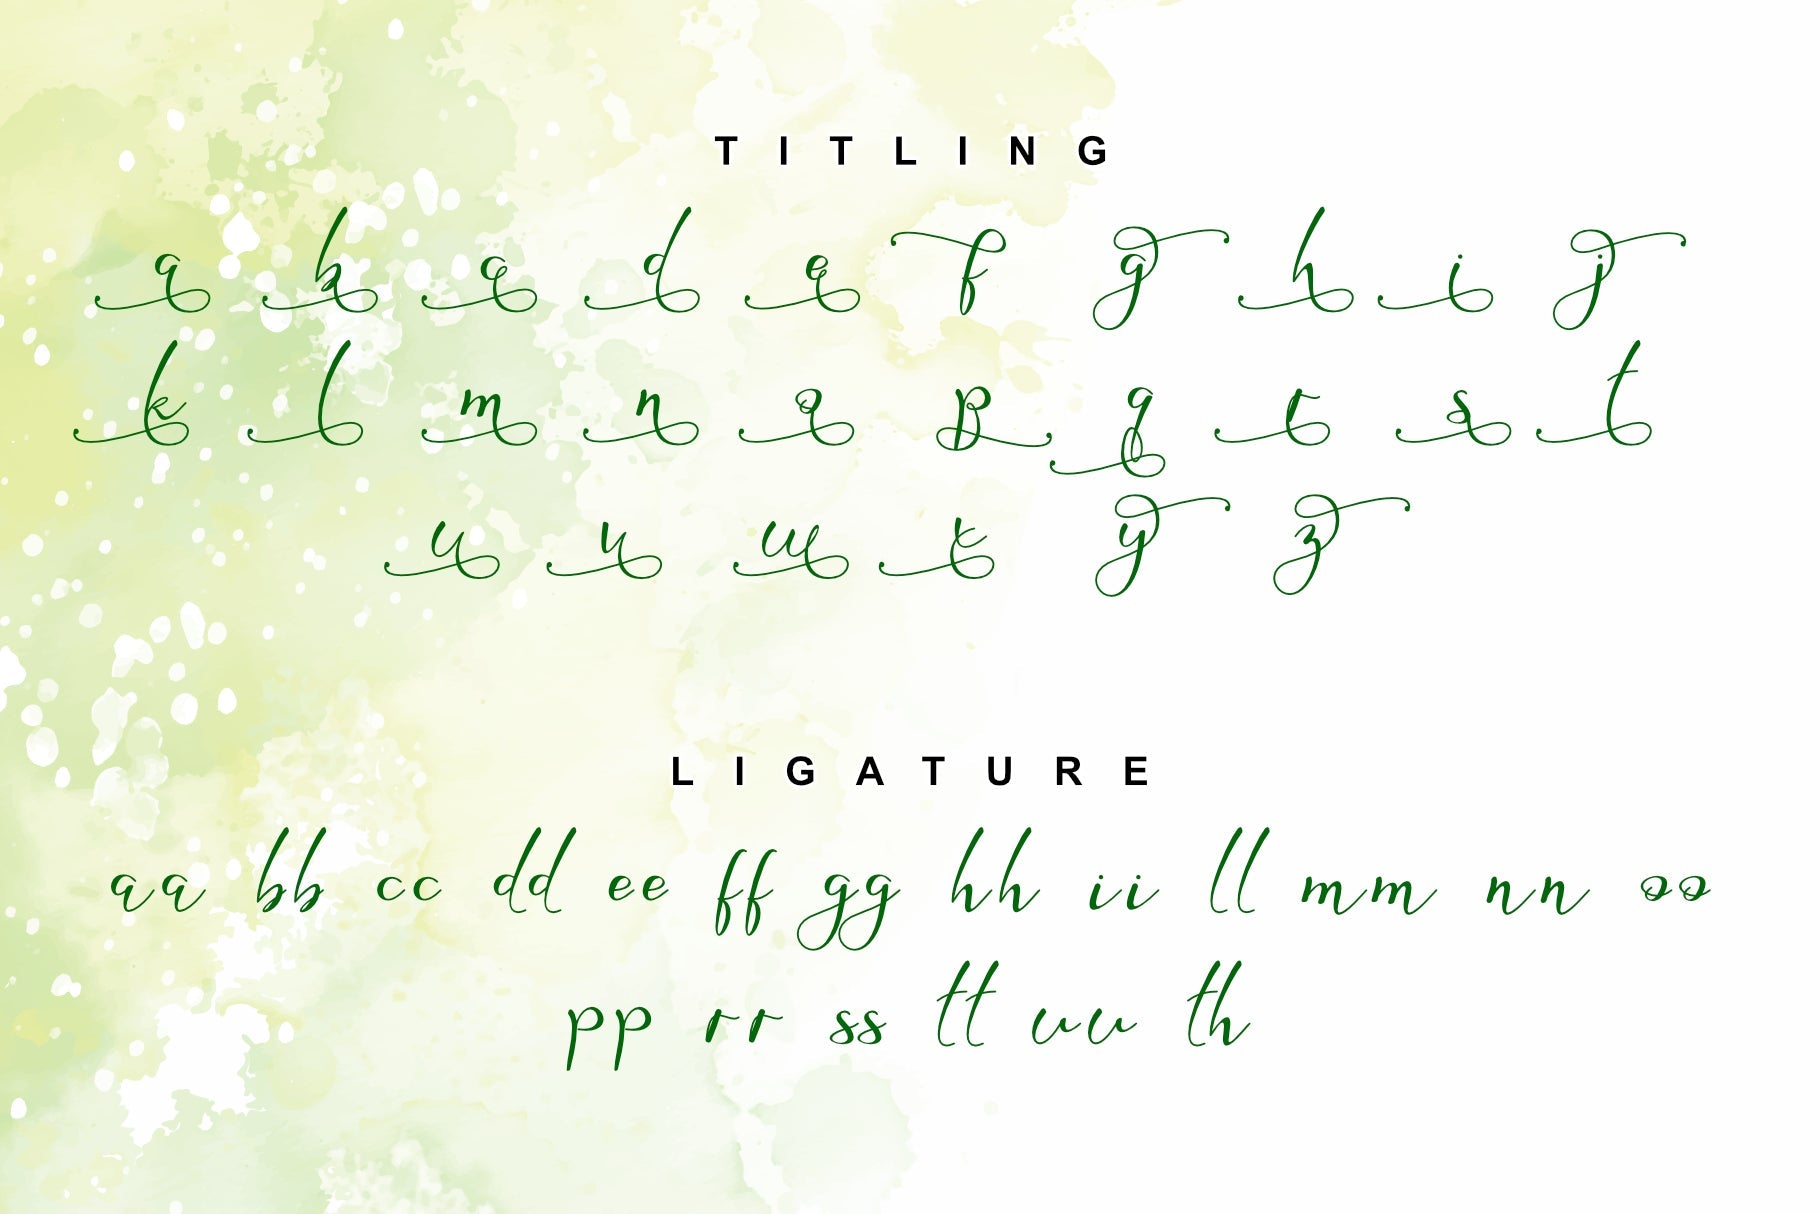 TITLING
a b c d e f g h i j
k l m n o p q r s t
u v w x y z
LIGATURE
aa bb cc dd ee ff gg hh ii ll mm nn oo
pp rr ss tt uu th